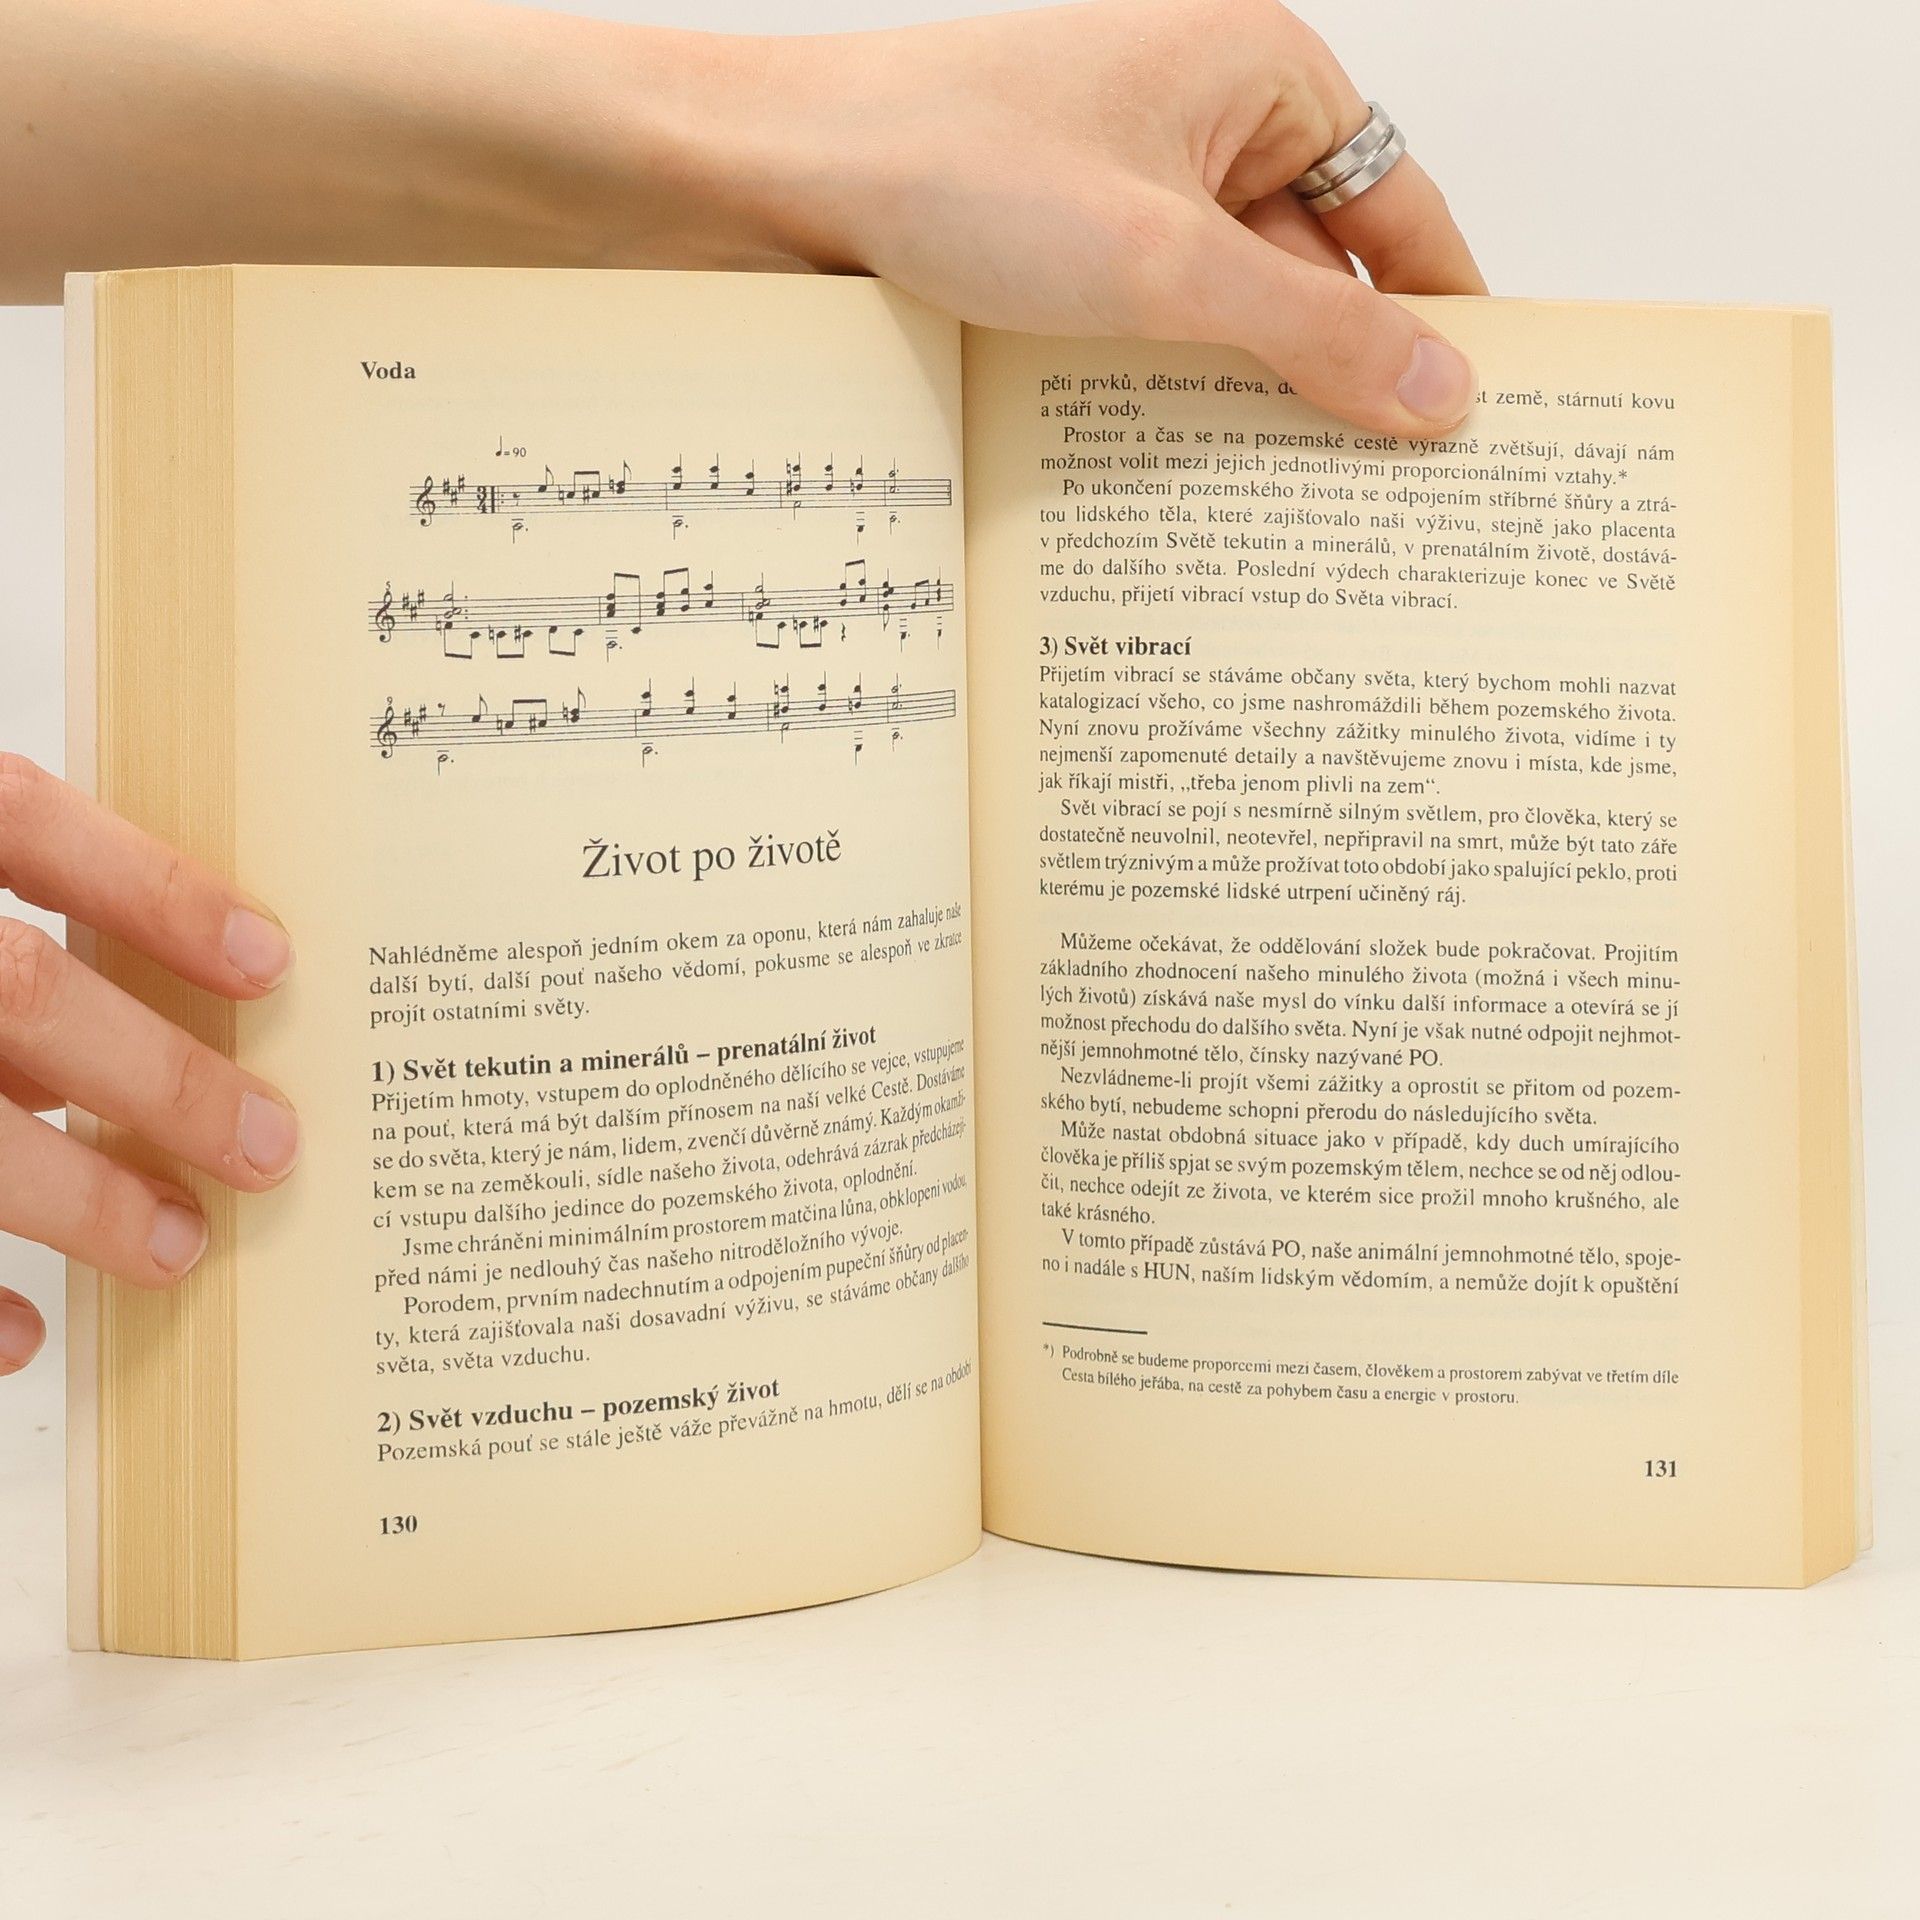 Voda
♩=90
3
4
5
9
Život po životě
Nahlédněme alespoň jedním okem za oponu, která nám zahaluje naše
další bytí, další pouť našeho vědomí, pokusme se alespoň ve zkratce
projít ostatními světy.
1) Svět tekutin a minerálů – prenatální život
Přijetím hmoty, vstupem do oplodněného dělícího se vejce, vstupujeme
na pouť, která má být dalším přínosem na naší velké Cestě. Dostáváme
se do světa, který je nám, lidem, zvenčí důvěrně známý. Každým okamži-
kem se na zeměkouli, sídle našeho života, odehrává zázrak předcházejí-
cí vstupu dalšího jedince do pozemského života, oplodnění.
Jsme chráněni minimálním prostorem matčina lůna, obklopeni vodou,
před námi je nedlouhý čas našeho nitroděložního vývoje.
Porodem, prvním nadechnutím a odpojením pupeční šňůry od placen-
ty, která zajišťovala naši dosavadní výživu, se stáváme občany dalšího
světa, světa vzduchu.
2) Svět vzduchu – pozemský život
Pozemská pouť se stále ještě váže převážně na hmotu, dělí se na období
130
pěti prvků, dětství dřeva, země, stárnutí kovu
a stáří vody.
Prostor a čas se na pozemské cestě výrazně zvětšují, dávají nám
možnost volit mezi jejich jednotlivými proporcionálními vztahy.*
Po ukončení pozemského života se odpojením stříbrné šňůry a ztrá-
tou lidského těla, které zajišťovalo naši výživu, stejně jako placenta
v předchozím Světě tekutin a minerálů, v prenatálním životě, dostává-
me do dalšího světa. Poslední výdech charakterizuje konec ve Světě
vzduchu, přijetí vibrací vstup do Světa vibrací.
3) Svět vibrací
Přijetím vibrací se stáváme občany světa, který bychom mohli nazvat
katalogizací všeho, co jsme nashromáždili během pozemského života.
Nyní znovu prožíváme všechny zážitky minulého života, vidíme i ty
nejmenší zapomenuté detaily a navštěvujeme znovu i místa, kde jsme,
jak říkají mistři, „třeba jenom plivli na zem“.
Svět vibrací se pojí s nesmírně silným světlem, pro člověka, který se
dostatečně neuvolnil, neotevřel, nepřipravil na smrt, může být tato záře
světlem trýznivým a může prožívat toto období jako spalující peklo, proti
kterému je pozemské lidské utrpení učiněný ráj.
Můžeme očekávat, že oddělování složek bude pokračovat. Projitím
základního zhodnocení našeho minulého života (možná i všech minu-
lých životů) získává naše mysl do vínku další informace a otevírá se jí
možnost přechodu do dalšího světa. Nyní je však nutné odpojit nejhmot-
nější jemnohmotné tělo, čínsky nazývané PO.
Nezvládneme-li projít všemi zážitky a oprostit se přitom od pozem-
ského bytí, nebudeme schopni přerodu do následujícího světa.
Může nastat obdobná situace jako v případě, kdy duch umírajícího
člověka je příliš spjat se svým pozemským tělem, nechce se od něj odlou-
čit, nechce odejít ze života, ve kterém sice prožil mnoho krušného, ale
také krásného.
V tomto případě zůstává PO, naše animální jemnohmotné tělo, spoje-
no i nadále s HUN, naším lidským vědomím, a nemůže dojít k opuštění
*) Podrobně se budeme proporcemi mezi časem, člověkem a prostorem zabývat ve třetím díle
Cesta bílého jeřába, na cestě za pohybem času a energie v prostoru.
131